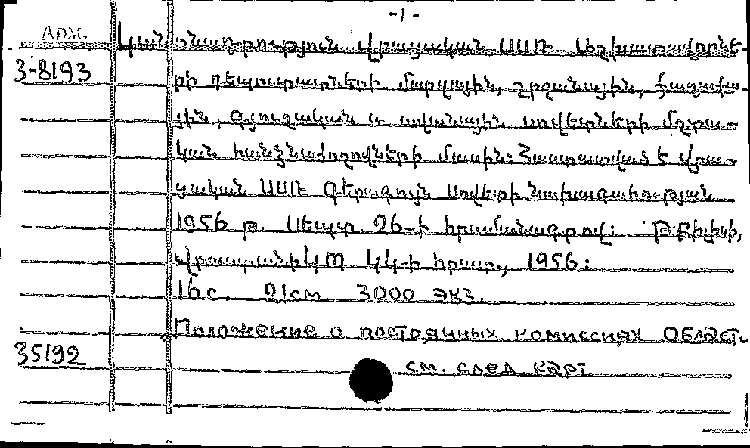 -1-
АРМ.
Կանոնադրություն Վրացական ՍՍՌ Աշխատավորնե-
3-8193
րի դեպուտատների մարզային, շրջանային, քաղաքա-
յին, գյուղական և ավանային սովետների մշտա-
կան հանձնաժողովների մասին: Հաստատված է Վրա-
ցական ՍՍՌ Գերագույն Սովետի նախագահության
1956 թ. սեպտ 26-ի հրամանագրով: Թբիլիսի,
Վրաստանի ԿՊ ԿԿ-ի հրատ., 1956:
16с. 21см 3000 экз.
Положение о постоянных комиссиях област-
35192
см. след карт